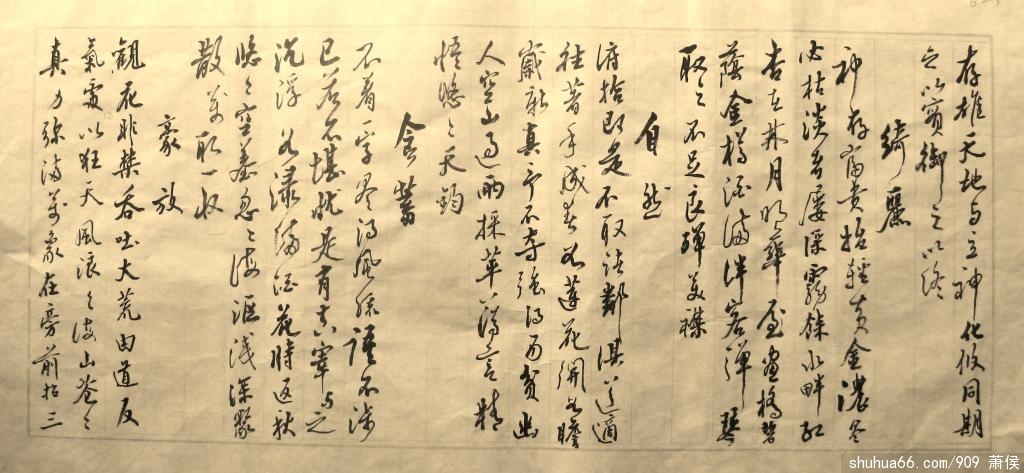 存雄天地与立神化攸同期
之以實御之以終
綺麗
神存富貴始輕黄金濃盡
必枯淡者屢深霧餘水畔紅
杏在林月明華屋畫橋碧
蔭金樽酒滿伴客彈琴
取之不足良殫美襟
自然
俯拾即是不取諸鄰俱道適
往着手成春如逢花開如瞻
歲新真予不奪強得易貧幽
人空山過雨採蘋薄言情
悟悠之天鈞
含蓄
不着一字盡得風流語不涉
已若不堪憂是有真宰与之
沉浮如淥滿酒花時返秋
悠之空塵忽之海漚淺深聚
散萬取一收
豪放
觀花非禁吞吐大荒由道反
氣處以狂天風浪之海山蒼之
真力弥滿萬象在旁前招三
shuhua66.com/909 萧侯